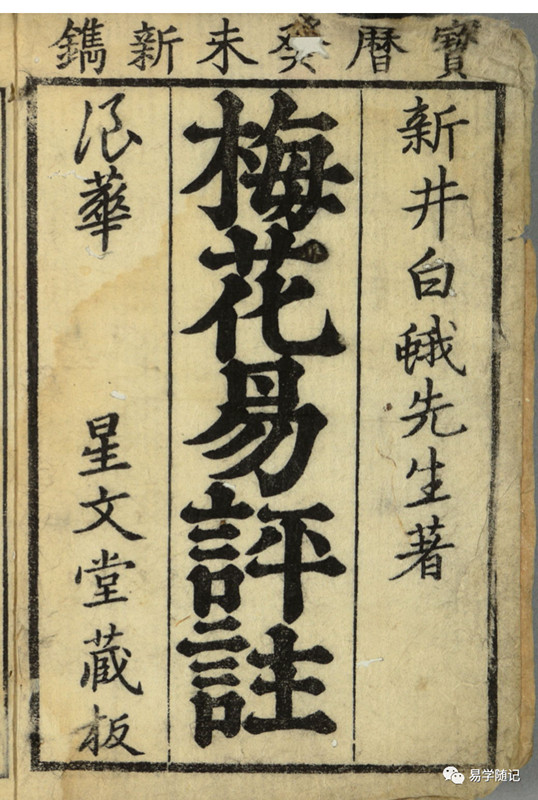 寶曆癸未新鐫
新井白蛾先生著
梅花易評註
浪華 星文堂蔵板
易学随记